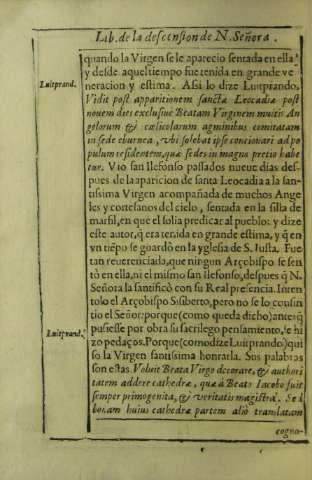 Lib. de la descension de N. Señora.
quando la Virgen se le aparecio sentada en ella,
y desde aquel tiempo fue tenida en grande ve
Luitprand. neracion y estima. Assi lo dize Luitprando,
Vidit post apparitionem sanctæ Leocadiæ post
nouem dies exclusiuè Beatam Virginem multis An
gelorum & cœlicolarum agminibus comitatam
in sede eburnea, vbi solebat ipse concionari ad po
pulum residentem, quæ sedes in magno pretio habe
tur. Vio san Ilefonso passados nueue dias des-
pues de la aparicion de santa Leocadia a la san-
tissima Virgen acompañada de muchos Ange
les y cortesanos del cielo, sentada en la silla de
marfil, en que el solia predicar al pueblo: y dize
este autor, q̃ era tenida en grande estima, y q̃ en
vn tiẽpo se guardò en la yglesia de S. Iusta. Fue
tan reuerenciada, que ningun Arçobispo se sen
tò en ella, ni el mismo san Ilefonso, despues q̃ N.
Señora la santificò con su Real presencia. Inten
tolo el Arçobispo Sisberto, pero no se lo consin
tio el Señor: porque (como queda dicho) antes q̃
pusiesse por obra su sacrilego pensamiento, se hi
Luitprand. zo pedaços. Porque (como dize Luitprando) qui
so la Virgen santissima honrarla. Sus palabras
son estas. Voluit Beata Virgo decorare, & authori
tatem addere cathedræ, quæ à Beato Iacobo fuit
semper primogenita, & veritatis magistra. Se i
bocam huius cathedræ partem aliò translatam
cogno-